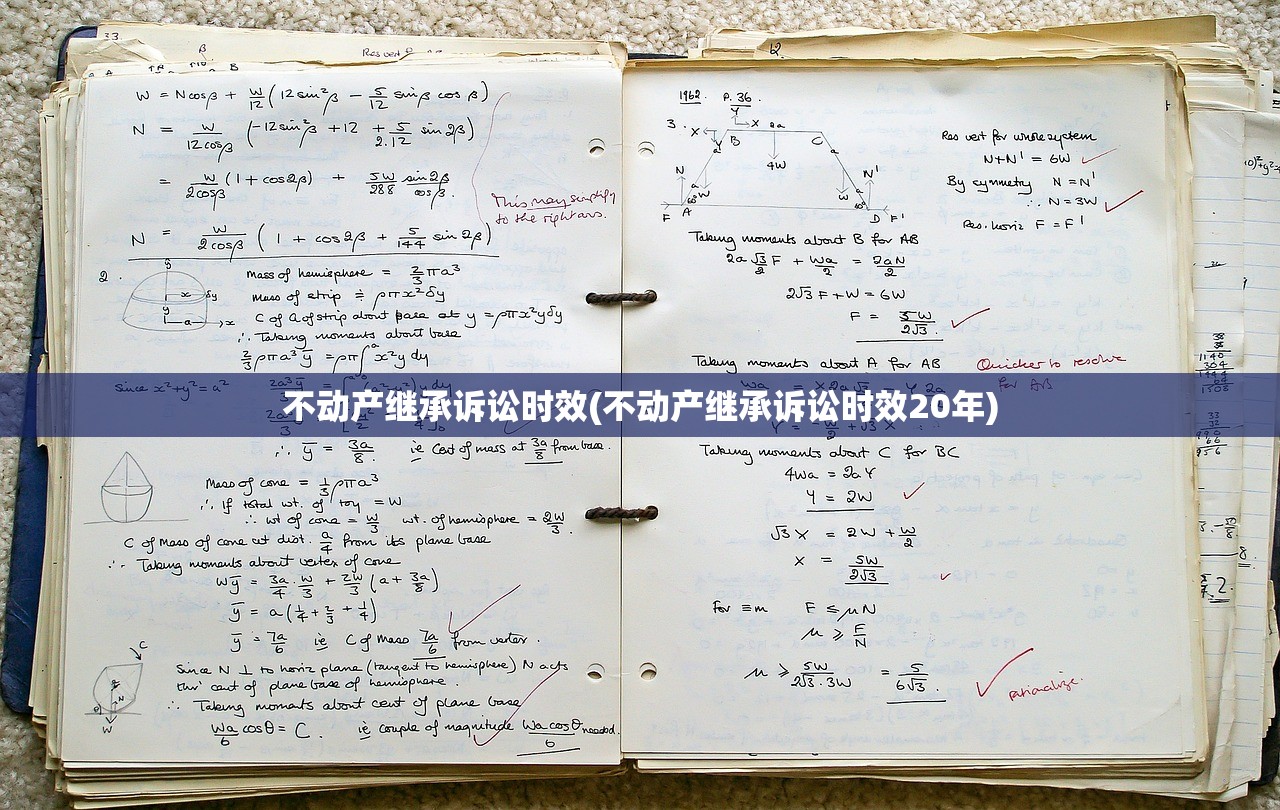 33.
β
Res vert
A
B
W = N cos β + W/12 (12 sin²β − 5/12 sin β cos β)
N = W/12cosβ (−12 sin²β + 12 + 5/2.12 sin 2β)
= W/2cosβ (1 + cos 2β) + 5W/288 sin 2β/cos β.
This may simplify
to the right ans.
N = W/2cosβ (1 + cos 2β + 5/144 sin 2β)
2.
y
x
δy
y
a
x
Mass of hemisphere = 2/3 πa³
Mass of strip ≑ ρπx²δy
C of G of strip about base at y = ρπx²yδy
∴ Taking moments about base
2/3 ρπa³ȳ = ρπ∫ᵃ₀ x²y dy
Since x²+y² = a²
不动产继承诉讼时效(不动产继承诉讼时效20年)
∴ ȳ = 3a/8. ie Cent of mass at 3a/8 from base.
Mass of cone = 1/3 ρπa³
∴ If total wt. of toy = W
∴ wt of cone = W/3 wt. of hemisphere = 2W/3.
C of Mass of cone at dist. a/4 from its plane base
∴ Taking moments about vertex of cone
Wȳ = 3a/4 . W/3 + 2W/3 (a + 3a/8)
ȳ = a(1/4 + 2/3 + 1/4)
ȳ = 7a/6 ie C of Mass 7a/6 from vertex.
C
N
θ
W
Since N ⊥ to horiz plane (tangent to hemisphere) N acts
thro' cent of plane base of hemisphere.
∴ Taking moments about cent of plane base
Wa/6 cosθ = C. ie couple of magnitude Wa cosθ/6 needed.
12
1962. P. 36.
3.
Y
X
X
2a
B
C
4W
N
N'
W
W
60°
60°
F
A
D
F'
Res vert for whole system
N+N' = 6W
By symmetry N = N'
∴ N = 3W
Res. horiz F = F'
Taking moments about B for AB
2a √3/2 F + Wa/2 = 2aN/2
2√3 F + W = 6W
F = 5W/2√3.
Taking moments about A for AB
Quicker to resolve
for AB
Taking moments about C for BC
4Wa = 2aY
Y = 2W
√3 X = 2W + W/2
X = 5W/2√3
For ≡m F ≤ μN
μ ≥ F/N
μ ≥ 5W/2√3.3W = 5/6√3.
rationalize.